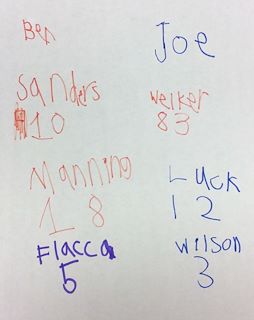 Ben Joe
Sanders
10
Welker
83
Manning
18
Luck
12
Flacca
5
Wilson
3